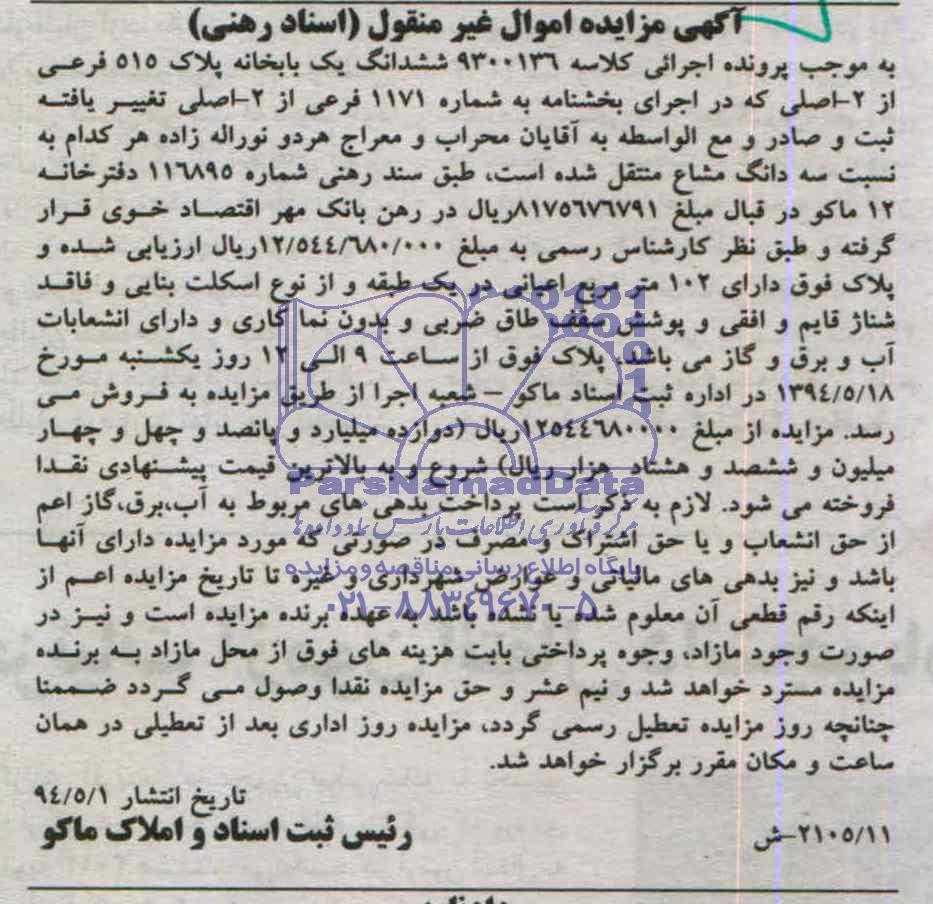 آگهی مزایده اموال غیر منقول (اسناد رهنی)
به موجب پرونده اجرائی کلاسه ۹۳۰۰۱۳۶ ششدانگ یک بابخانه پلاک ۵۱۵ فرعی
از ۲-اصلی که در اجرای بخشنامه به شماره ۱۱۷۱ فرعی از ۲-اصلی تغییر یافته
ثبت و صادر و مع الواسطه به آقایان محراب و معراج هردو نوراله زاده هر کدام به
نسبت سه دانگ مشاع منتقل شده است، طبق سند رهنی شماره ۱۱۶۸۹۵ دفترخانه
۱۲ ماکو در قبال مبلغ ۸۱۷۵۶۷۶۷۹۱ریال در رهن بانک مهر اقتصاد خوی قرار
گرفته و طبق نظر کارشناس رسمی به مبلغ ۱۲/۵۴۴/۶۸۰/۰۰۰ریال ارزیابی شده و
پلاک فوق دارای ۱۰۲ متر مربع اعیانی در یک طبقه و از نوع اسکلت بنایی و فاقد
شناژ قایم و افقی و پوشش سقف طاق ضربی و بدون نما کاری و دارای انشعابات
آب و برق و گاز می باشد. پلاک فوق از ساعت ۹ الی ۱۲ روز یکشنبه مورخ
۱۳۹۴/۵/۱۸ در اداره ثبت اسناد ماکو – شعبه اجرا از طریق مزایده به فروش می
رسد. مزایده از مبلغ ۱۲۵۴۴۶۸۰۰۰۰ریال (دوازده میلیارد و پانصد و چهل و چهار
میلیون و ششصد و هشتاد هزار ریال) شروع و به بالاترین قیمت پیشنهادی نقدا
فروخته می شود. لازم به ذکر است پرداخت بدهی های مربوط به آب،برق،گاز اعم
از حق انشعاب و یا حق اشتراک و مصرف در صورتی که مورد مزایده دارای آنها
باشد و نیز بدهی های مالیاتی و عوارض شهرداری و غیره تا تاریخ مزایده اعم از
اینکه رقم قطعی آن معلوم شده یا نشده باشد به عهده برنده مزایده است و نیز در
صورت وجود مازاد، وجوه پرداختی بابت هزینه های فوق از محل مازاد به برنده
مزایده مسترد خواهد شد و نیم عشر و حق مزایده نقدا وصول می گردد ضممنا
چنانچه روز مزایده تعطیل رسمی گردد، مزایده روز اداری بعد از تعطیلی در همان
ساعت و مکان مقرر برگزار خواهد شد.
تاریخ انتشار ۹۴/۵/۱
۲۱۰۵/۱۱-ش رئیس ثبت اسناد و املاک ماکو
ParsNamadData
مرکز فرآوری اطلاعات پارس نماد داده ها
پایگاه اطلاع رسانی مناقصه و مزایده
۰۲۱-۸۸۳۴۹۶۷۰-۵